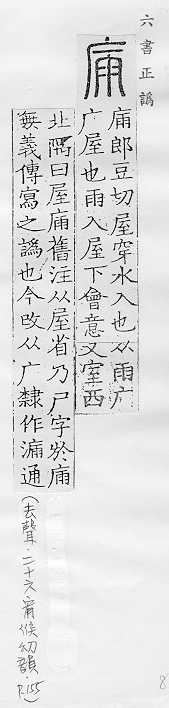 六書正譌
郎豆切屋穿水入也从雨广
广屋也雨入屋下會意又室西
北隅曰屋舊注从屋省乃尸字於
無義傳寫之譌也今改从广隸作漏通
(去聲.二十六宥候幼韻.P.155)
8